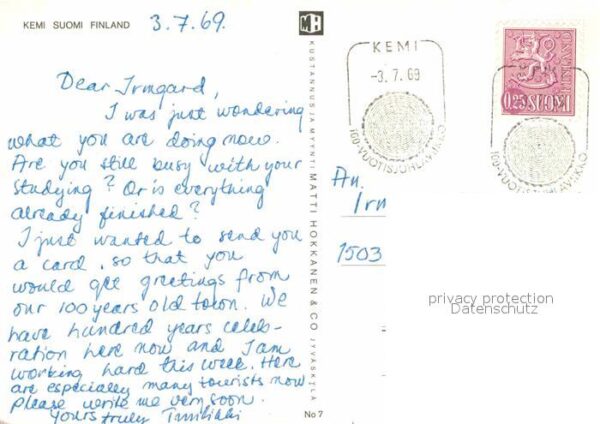 KEMI SUOMI FINLAND
3.7.69.
Dear Irmgard,
I was just wondering
what you are doing now.
Are you still busy with your
studying? Or is everything
already finished?
I just wanted to send you
a card, so that you
would get greetings from
our 100 years old town. We
have hundred years celeb-
ration here now and I am
working hard this week. Here
are especially many tourists now
Please write me very soon.
Yours truly Tuulikki
KUSTANNUS JA MYYNTI MATTI HOKKANEN & CO JYVÄSKYLÄ
No 7
KEMI
-3.7.69
100-VUOTISJUHLAVIIKKO
0,25 SUOMI
FINLAND
100-VUOTISJUHLAVIIKKO
An.
Irn
1503
privacy protection
Datenschutz